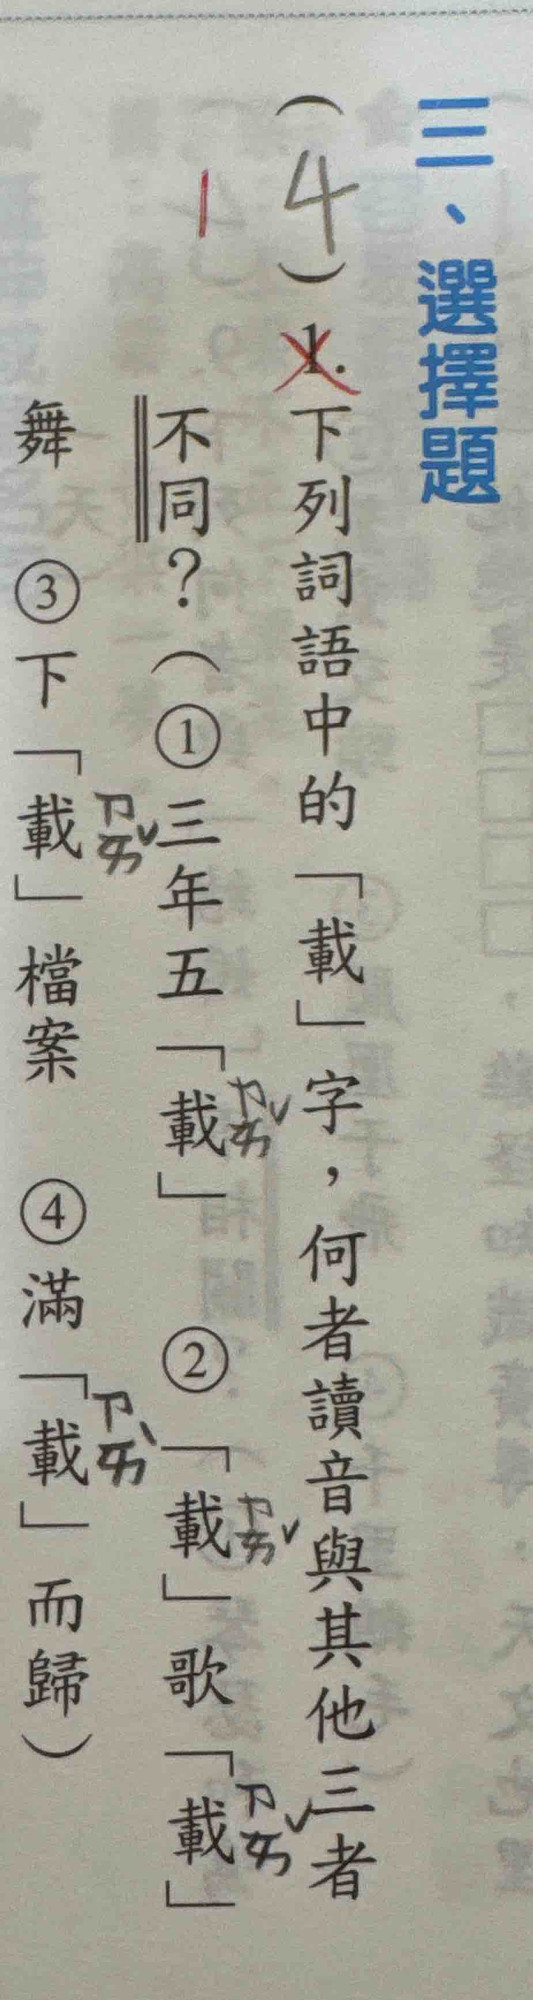 三、選擇題
（4）1.下列詞語中的「載」字，何者讀音與其他三者
1
不同？（①三年五「載ㄗㄞˇ」　②「載ㄗㄞˇ」歌「載ㄗㄞˇ」
舞　③下「載ㄗㄞˇ」檔案　④滿「載ㄗㄞˋ」而歸）